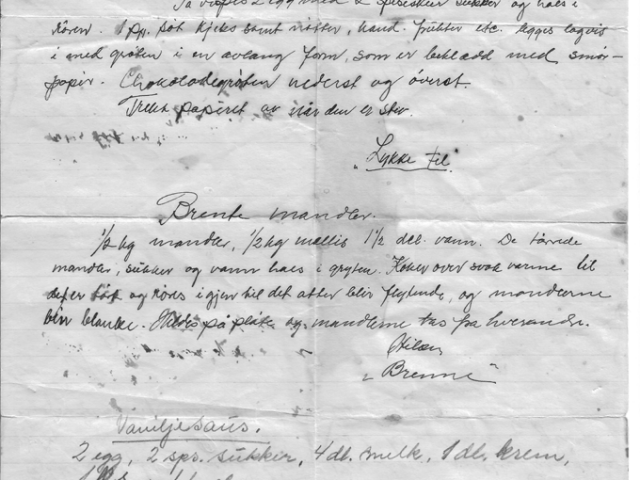 Så vispes 2 egg med 2 spiseskjer sukker og haes i
røren. 1 pk. søt kjeks samt nøtter, kand. frukter etc. legges lagvis
i med grøten i en avlang form, som er beklædd med smør-
papir. Chokoladegrøten nederst og øverst.
Trekk papiret av når den er stiv.
"Lykke til"
Brente mandler.
1/2 kg mandler, 1/2 kg mellis 1 1/2 del. vann. De tørrede
mandler, sukker og vann haes i gryten. Koker over svak varme til
det er tørt og røres i gjen til det atter blir flytende, og mandlerne
blir blanke. Heldes på plate og mandlerne tas fra hverandre.
Hilsen
"Brenne"
Vaniljesaus.
2 egg, 2 sps. sukker, 4 dl. melk, 1 dl. krem,